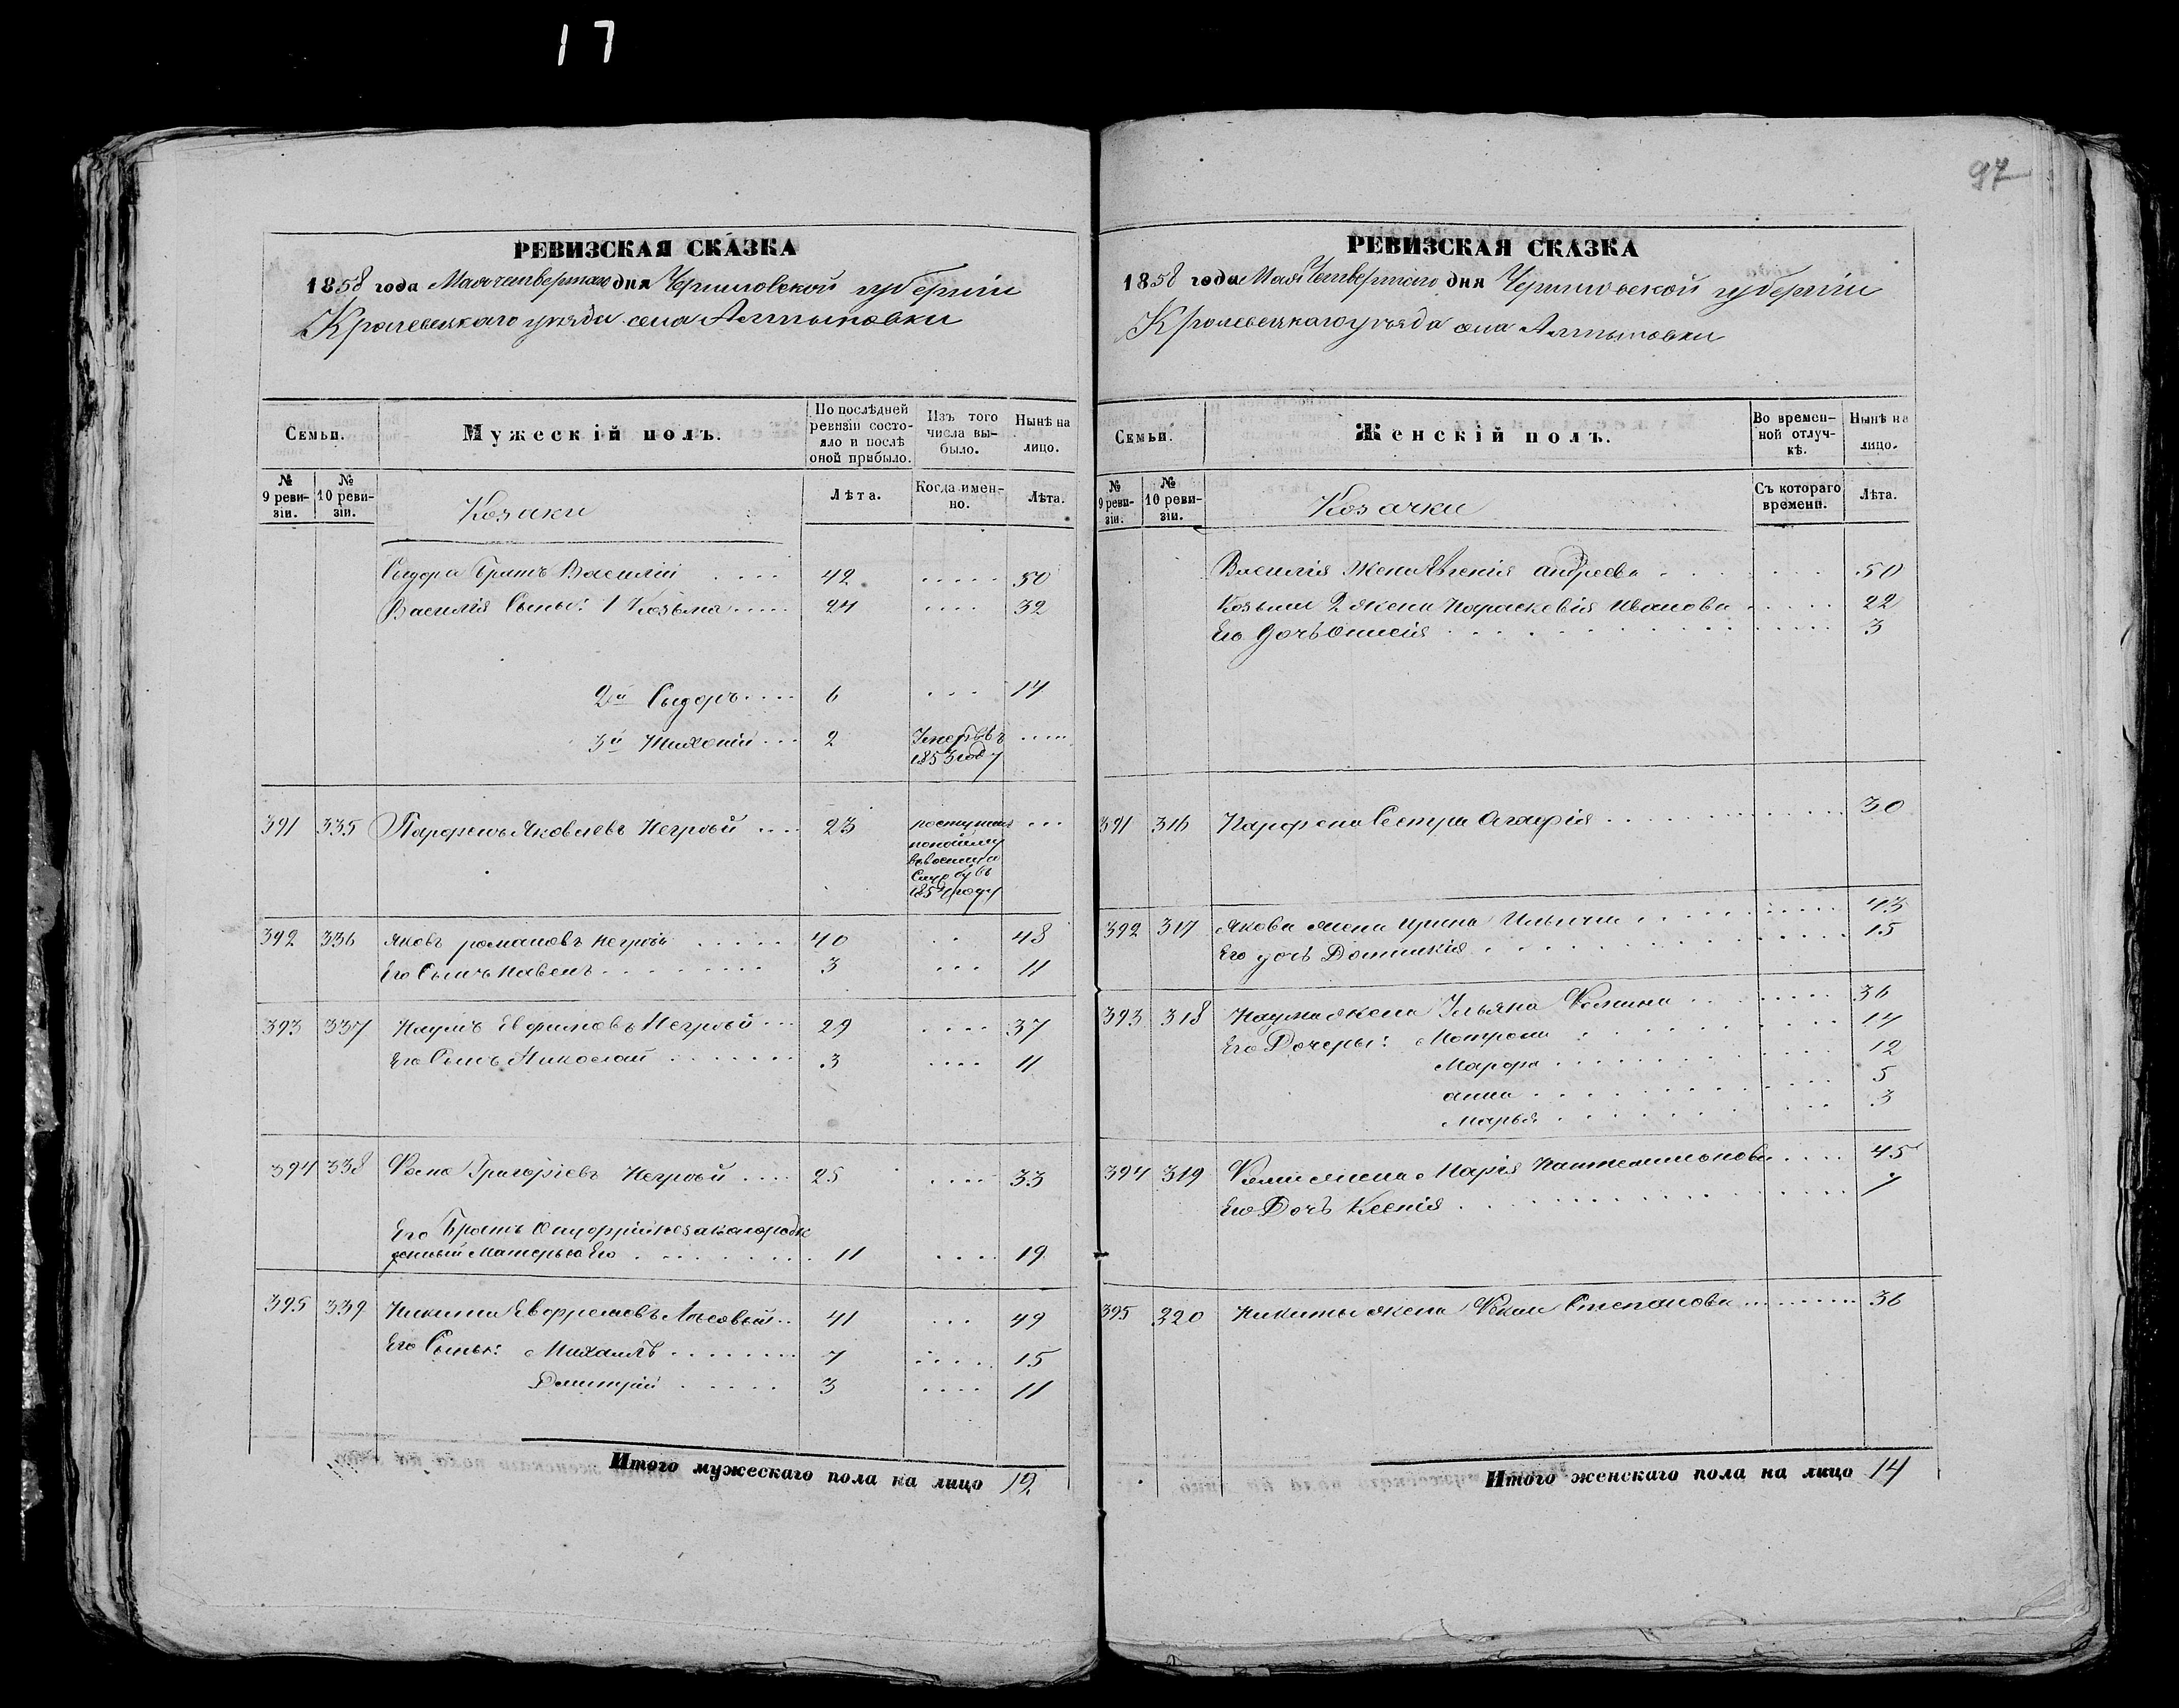 17
97
РЕВИЗСКАЯ СКАЗКА
1858 года Мая четвертаго дня Черниговской губерніи
Кролевецкаго уезда села Алтыновки
Семьи.
Мужескій полъ.
По послѣдней ревизіи состояло и послѣ оной прибыло.
Изъ того числа выбыло.
Нынѣ на лицо.
№ 9 ревизіи.
№ 10 ревизіи.
Козаки
Лѣта.
Когда именно.
Лѣта.
Сидора Братъ Василій .... 42 ..... 50
Василія Сыны: 1 Козьма ..... 24 .... 32
2й Сидоръ .... 6 ... 14
3й Тихонъ ... 2 Умеръ въ .....
1853 году
391 335 Парфенъ Яковлевъ Негрый .... 23 поступилъ ...
по найму
въ военную
Службу въ
185 году
392 336 Яковъ романовъ Негрый ..... 40 .. 48
Его Сынъ Павелъ ........ 3 ... 11
393 337 Наумъ Евфимовъ Негрый ... 29 .... 37
Его Сынъ Николай ....... 3 .... 11
394 338 Фома Григоріевъ Негрый .... 25 .... 33
Его Братъ Онуфрій незаконорож
денный Матерью Его ........ 11 .... 19
395 339 Никита Евфремовъ Лысовый .. 41 ... 49
Его Сыны: Михаилъ ....... 7 ..... 15
Димитрій ..... 3 .... 11
Итого мужескаго пола на лицо 12.
РЕВИЗСКАЯ СКАЗКА
1858 года Мая Четвертаго дня Черниговской губерніи
Кролевецкаго уезда села Алтыновки
Семьи.
Женскій полъ.
Во временной отлучкѣ.
Нынѣ на лицо.
№ 9 ревизіи.
№ 10 ревизіи.
Козачки
Съ котораго времени.
Лѣта.
Василія Жена Евгенія андреева 50
Козьмы 2 жена Параскевія Иванова 22
Его Дочь Анисія 3
391 316 Парфена Сестра Агафія 30
392 317 Якова жена ирина Ильична 43
Его дочь Домникія 15
393 318 Наума жена Ульяна Фомина 36
Его Дочеры: Мотрона 14
Марфа 12
анна 5
Марья 3
394 319 Фомы жена Марія Пантелимонова 45
Его Дочь Ксенія 7
395 220 Никиты жена Фекла Степанова 36
Итого женскаго пола на лицо 14